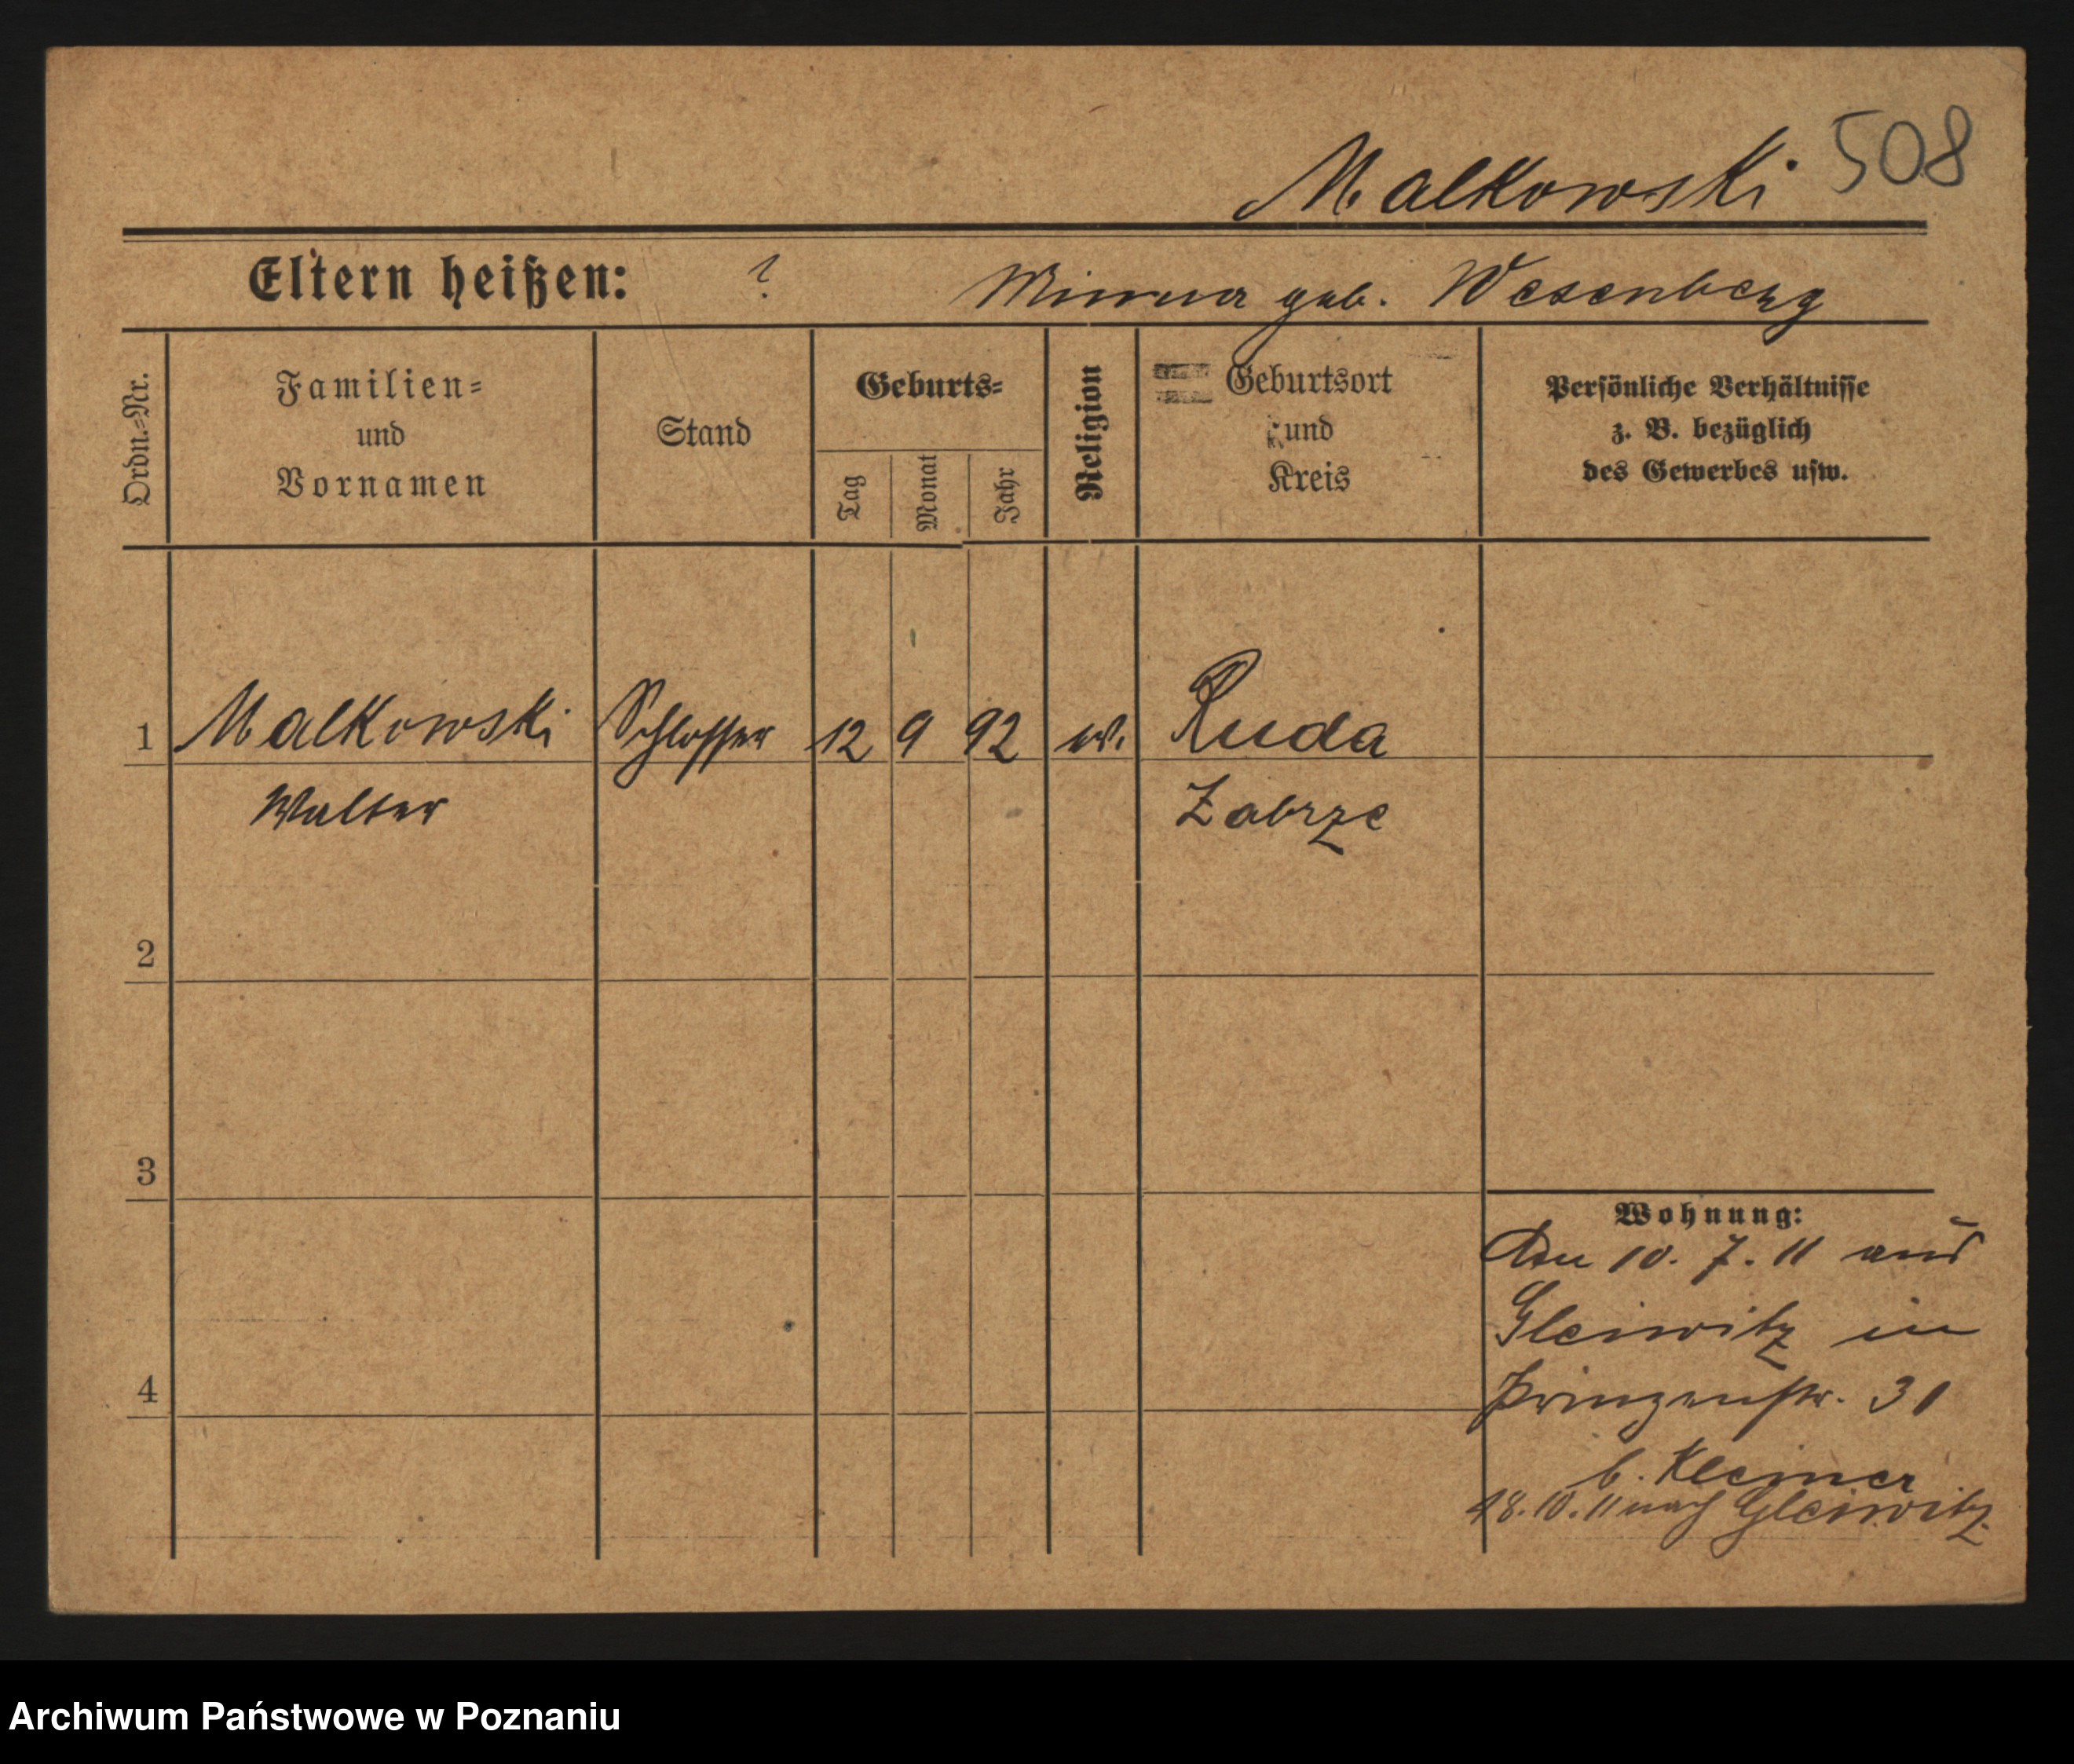 508
Malkowski
Eltern heißen: ? Minna geb. Wesenberg
Ordn.=Nr.
Familien=
und
Vornamen
Stand
Geburts=
Tag
Monat
Jahr
Religion
Geburtsort
und
Kreis
Persönliche Verhältnisse
z. B. bezüglich
des Gewerbes usw.
1 Malkowski Schlosser 12 9 92 Ruda
Walter Zabrze
2
3
4
Wohnung:
10. 7. 11 aus
Gleiwitz in
Prinzenstr. 31
b. Kleiner
18. 10. 11 nach Gleiwitz.
Archiwum Państwowe w Poznaniu